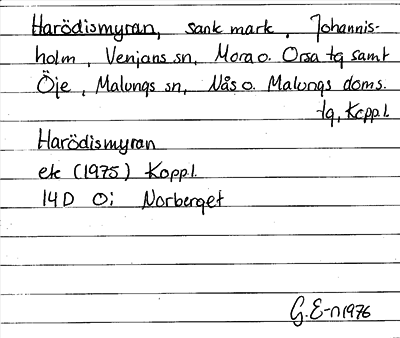 Harödismyran, sank mark, Johannis-
holm, Venjans sn, Mora o. Orsa tg samt
Öje, Malungs sn, Nås o. Malungs doms.
tg, Kopp.l.
Harödismyran
ek (1975) Kopp.l.
14D Oi Norberget
G. E-n 1976